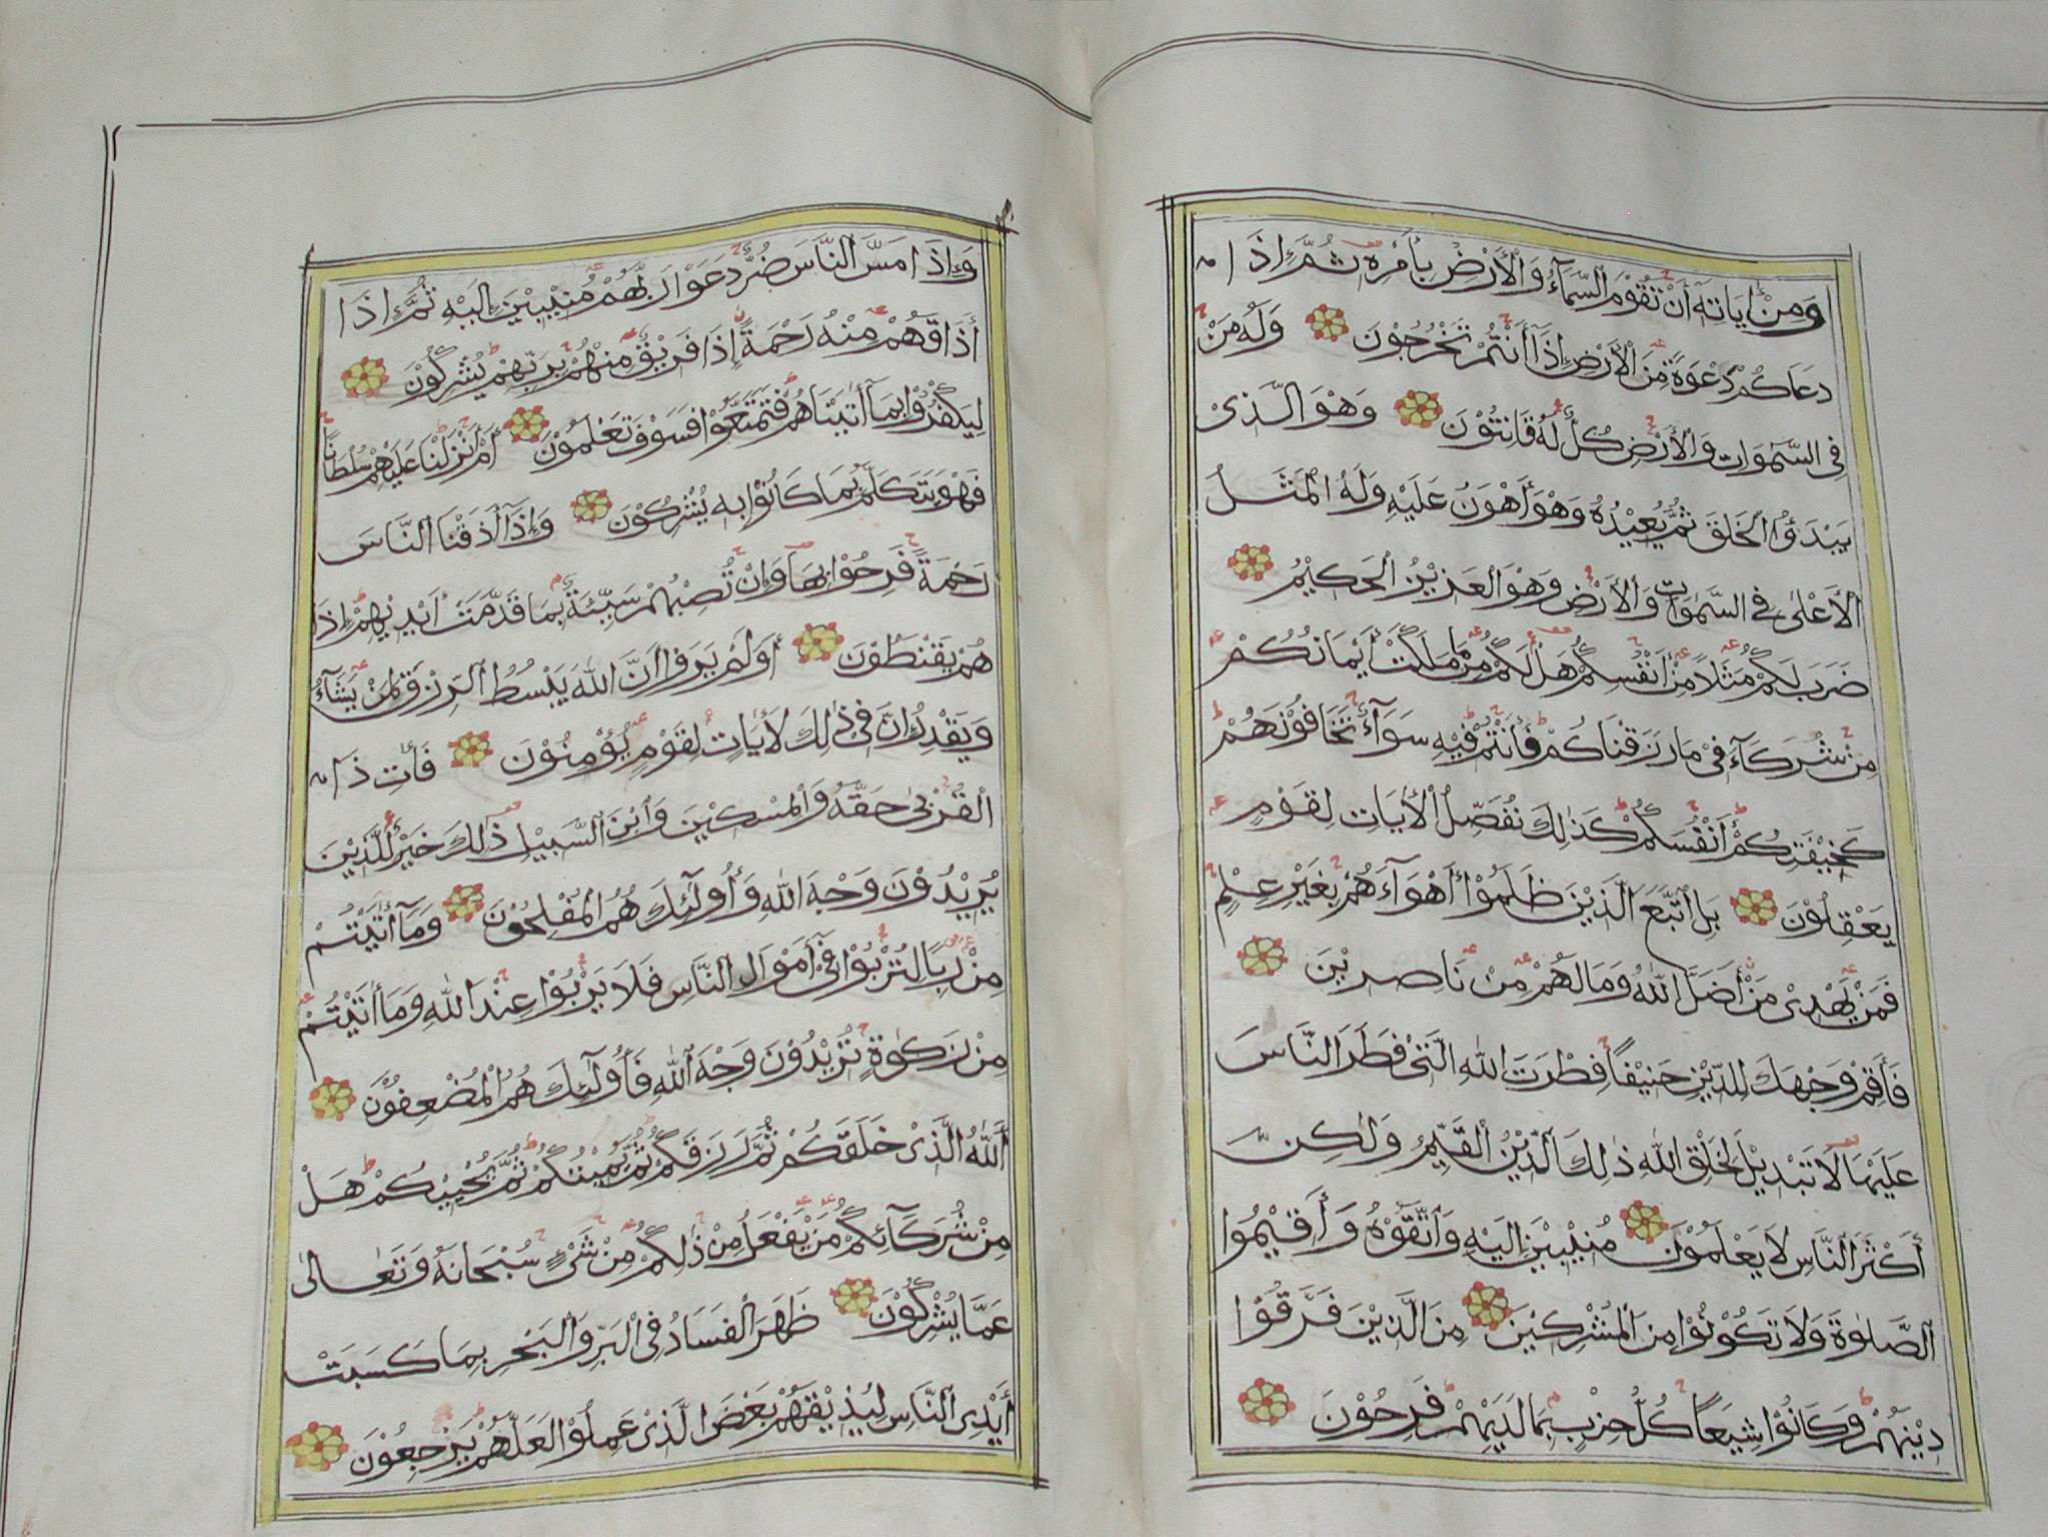 وَمِنْ اٰيَاتِهٖ أَنْ تَقُوْمَ السَّمَآءُ وَالْأَرْضُ بِأَمْرِهٖ ثُمَّ إِذَا
دَعَاكُمْ دَعْوَةً مِنَ الْأَرْضِ إِذَآ أَنْتُمْ تَخْرُجُوْنَ وَلَهُ مَنْ
فِي السَّمٰوَاتِ وَالْأَرْضِ كُلٌّ لَهُ قَانِتُوْنَ وَهْوَ الَّذِىْ
يَبْدَؤُا الْخَلْقَ ثُمَّ يُعِيْدُهُ وَهْوَ أَهْوَنُ عَلَيْهِ وَلَهُ الْمَثَلُ
الْأَعْلٰى فِي السَّمٰوَاتِ وَالْأَرْضِ وَهْوَ الْعَزِيْزُ الْحَكِيْمُ
ضَرَبَ لَكُمْ مَثَلًا مِنْ أَنْفُسِكُمْ هَلْ لَكُمْ مِنْ مَا مَلَكَتْ أَيْمَانُكُمْ
مِنْ شُرَكَآءَ فِىْ مَا رَزَقْنَاكُمْ فَأَنْتُمْ فِيْهِ سَوَآءٌ تَخَافُوْنَهُمْ
كَخِيْفَتِكُمْ أَنْفُسَكُمْ كَذٰلِكَ نُفَصِّلُ الْأٰيَاتِ لِقَوْمٍ
يَعْقِلُوْنَ بَلِ اتَّبَعَ الَّذِيْنَ ظَلَمُوْا أَهْوَآءَهُمْ بِغَيْرِ عِلْمٍ
فَمَنْ يَهْدِىْ مَنْ أَضَلَّ اللّٰهُ وَمَا لَهُمْ مِنْ نَاصِرِيْنَ
فَأَقِمْ وَجْهَكَ لِلدِّيْنِ حَنِيْفًا فِطْرَتَ اللّٰهِ الَّتِىْ فَطَرَ النَّاسَ
عَلَيْهَا لَا تَبْدِيْلَ لِخَلْقِ اللّٰهِ ذٰلِكَ الدِّيْنُ الْقَيِّمُ وَلٰكِنَّ
أَكْثَرَ النَّاسِ لَا يَعْلَمُوْنَ مُنِيْبِيْنَ إِلَيْهِ وَاتَّقُوْهُ وَأَقِيْمُوا
الصَّلٰوةَ وَلَا تَكُوْنُوْا مِنَ الْمُشْرِكِيْنَ مِنَ الَّذِيْنَ فَرَّقُوْا
دِيْنَهُمْ وَكَانُوْا شِيَعًا كُلُّ حِزْبٍ بِمَا لَدَيْهِمْ فَرِحُوْنَ
وَإِذَا مَسَّ النَّاسَ ضُرٌّ دَعَوْا رَبَّهُمْ مُنِيْبِيْنَ إِلَيْهِ ثُمَّ إِذَا
أَذَاقَهُمْ مِنْهُ رَحْمَةً إِذَا فَرِيْقٌ مِنْهُمْ بِرَبِّهِمْ يُشْرِكُوْنَ
لِيَكْفُرُوْا بِمَآ أٰتَيْنَاهُمْ فَتَمَتَّعُوْا فَسَوْفَ تَعْلَمُوْنَ أَمْ أَنْزَلْنَا عَلَيْهِمْ سُلْطَانًا
فَهْوَ يَتَكَلَّمُ بِمَا كَانُوْا بِهِ يُشْرِكُوْنَ وَإِذَآ أَذَقْنَا النَّاسَ
رَحْمَةً فَرِحُوْا بِهَا وَإِنْ تُصِبْهُمْ سَيِّئَةٌ بِمَا قَدَّمَتْ أَيْدِيْهِمْ إِذَا
هُمْ يَقْنَطُوْنَ أَوَلَمْ يَرَوْا أَنَّ اللّٰهَ يَبْسُطُ الرِّزْقَ لِمَنْ يَشَآءُ
وَيَقْدِرُ إِنَّ فِىْ ذٰلِكَ لَأٰيَاتٍ لِقَوْمٍ يُؤْمِنُوْنَ فَأٰتِ ذَا
الْقُرْبٰى حَقَّهُ وَالْمِسْكِيْنَ وَابْنَ السَّبِيْلِ ذٰلِكَ خَيْرٌ لِلَّذِيْنَ
يُرِيْدُوْنَ وَجْهَ اللّٰهِ وَأُولٰٓئِكَ هُمُ الْمُفْلِحُوْنَ وَمَآ أٰتَيْتُمْ
مِنْ رِبًا لِتُرْبُوْا فِىْ أَمْوَالِ النَّاسِ فَلَا يَرْبُوْا عِنْدَ اللّٰهِ وَمَآ أٰتَيْتُمْ
مِنْ زَكٰوةٍ تُرِيْدُوْنَ وَجْهَ اللّٰهِ فَأُولٰٓئِكَ هُمُ الْمُضْعِفُوْنَ
أَللّٰهُ الَّذِىْ خَلَقَكُمْ ثُمَّ رَزَقَكُمْ ثُمَّ يُمِيْتُكُمْ ثُمَّ يُحْيِيْكُمْ هَلْ
مِنْ شُرَكَآئِكُمْ مَنْ يَفْعَلُ مِنْ ذٰلِكُمْ مِنْ شَىْءٍ سُبْحَانَهُ وَتَعَالٰى
عَمَّا يُشْرِكُوْنَ ظَهَرَ الْفَسَادُ فِي الْبَرِّ وَالْبَحْرِ بِمَا كَسَبَتْ
أَيْدِى النَّاسِ لِيُذِيْقَهُمْ بَعْضَ الَّذِىْ عَمِلُوْا لَعَلَّهُمْ يَرْجِعُوْنَ